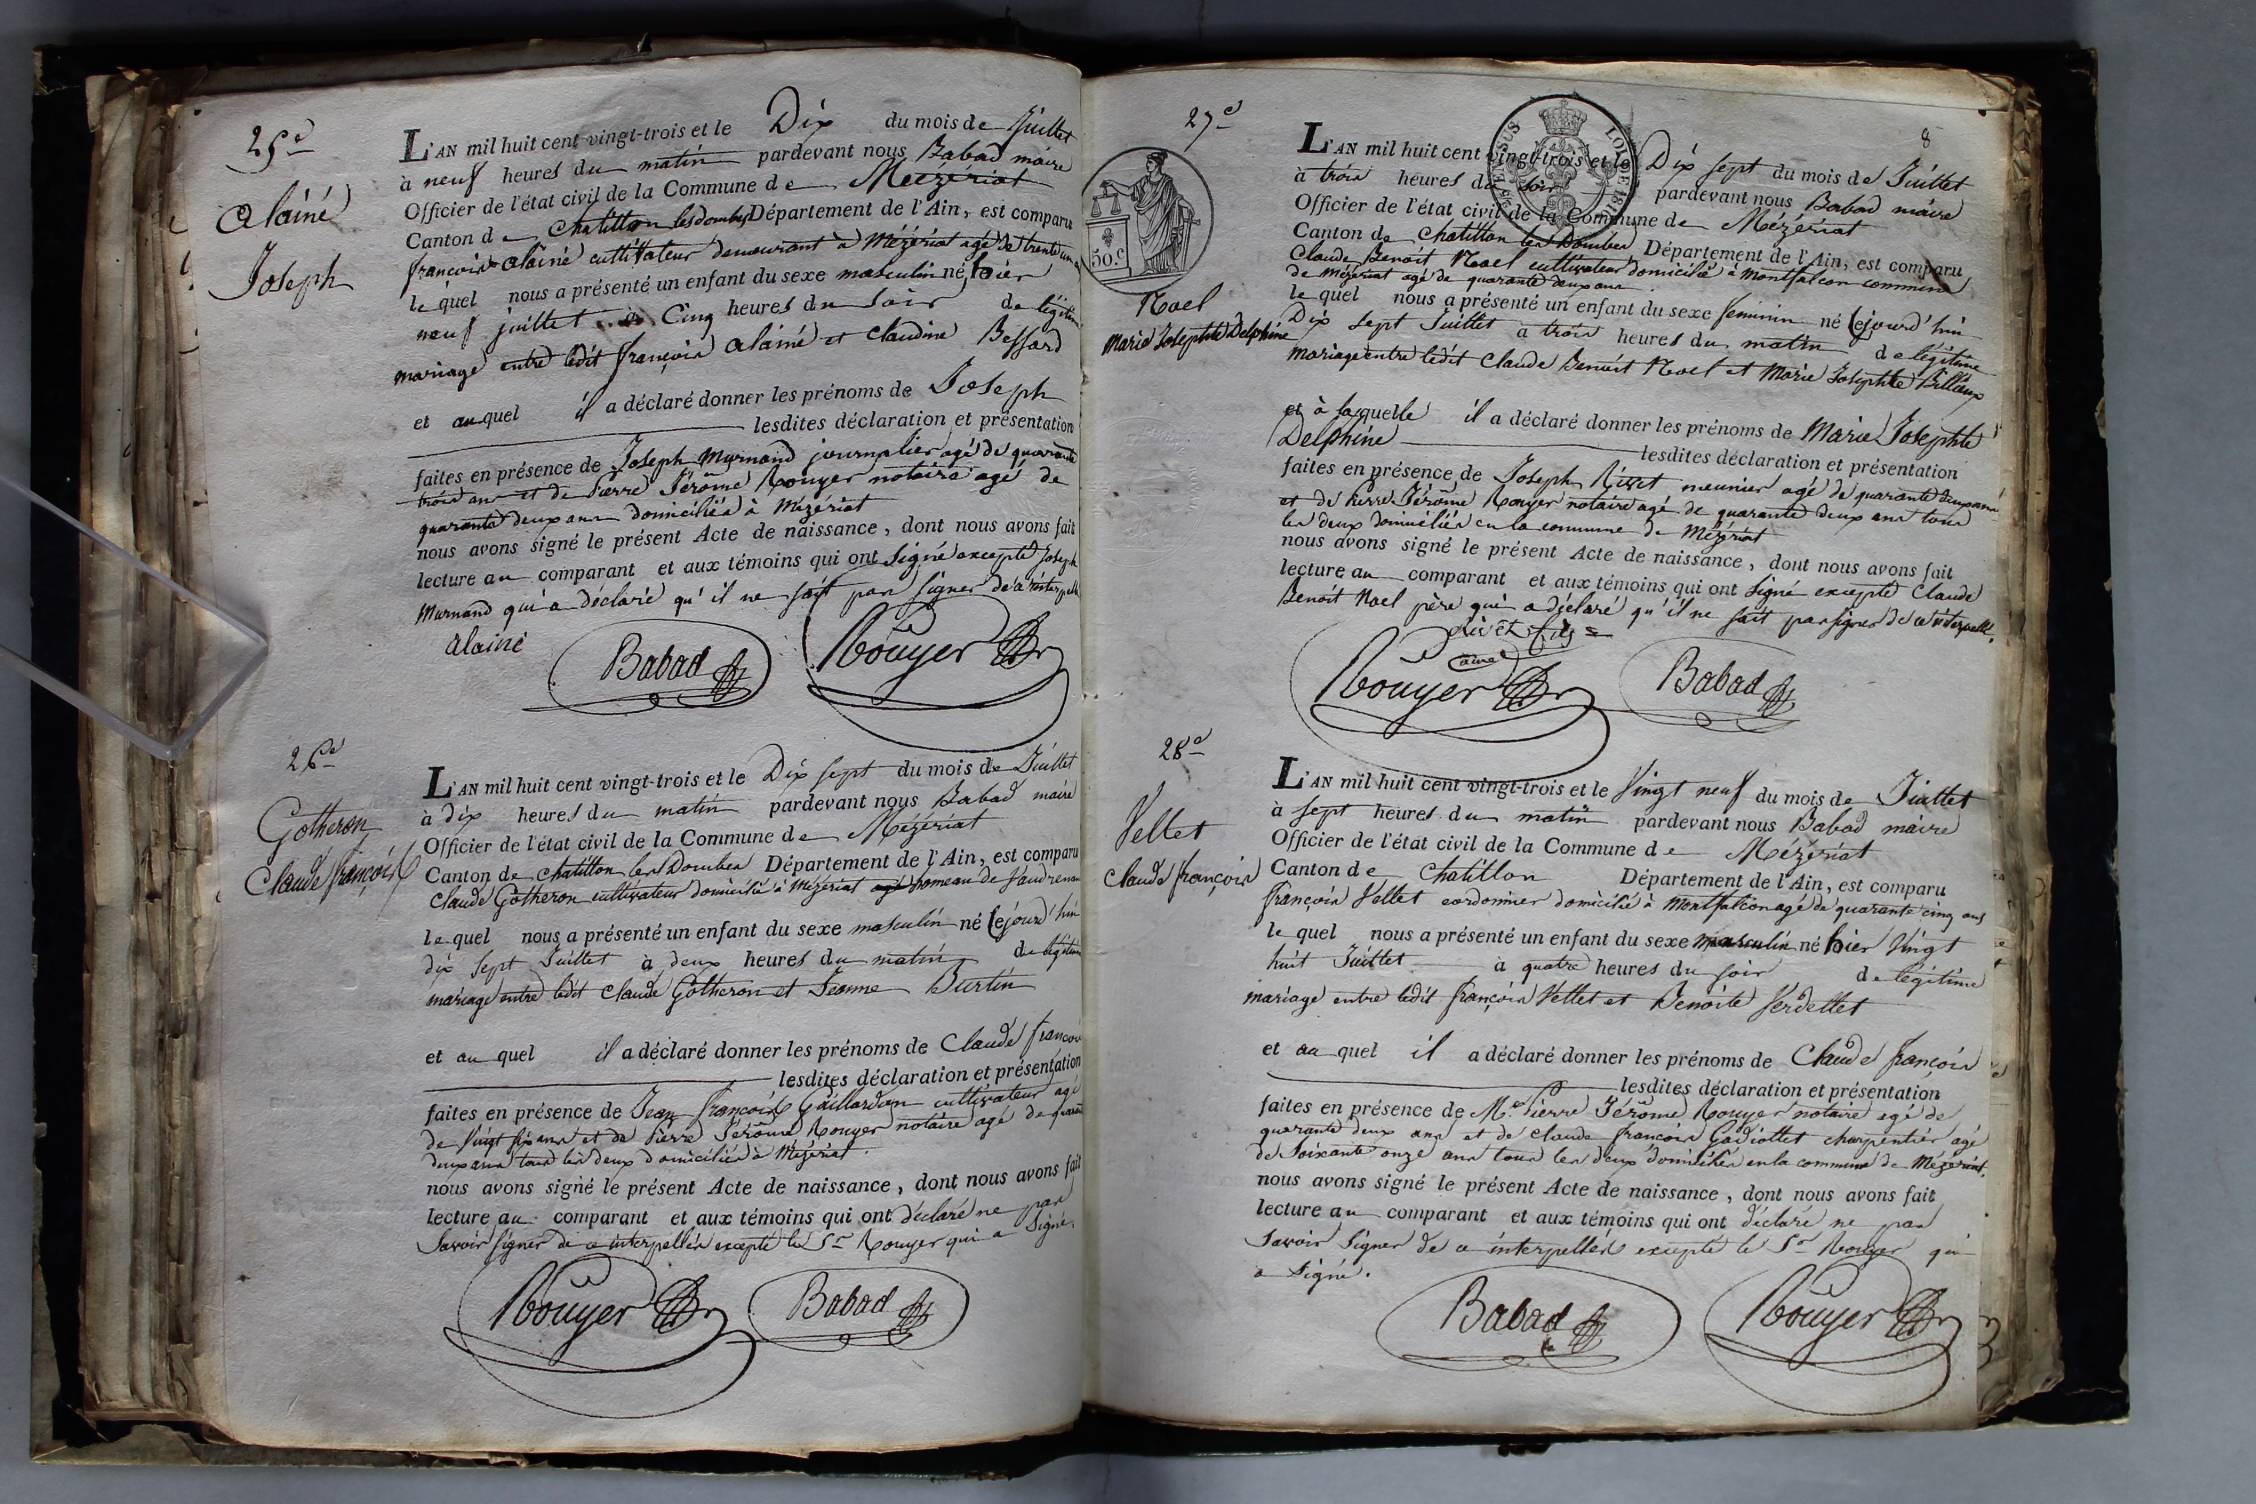 25e
Alainé
Joseph
L'AN mil huit cent vingt-trois et le Dix du mois de Juillet
à neuf heures du matin pardevant nous Babad maire
Officier de l'état civil de la Commune de Mezeriat
Canton de Chatillon les dombes Département de l'Ain, est comparu
françois alainé cultivateur demeurant à Mézériat agé de trente un a
le quel nous a présenté un enfant du sexe masculin né hier
neuf juillet à Cinq heures du soir de légitime
mariage entre ledit françois alainé et claudine Bessard
et au quel il a déclaré donner les prénoms de Joseph
lesdites déclaration et présentation
faites en présence de Joseph Murnand journalier agé de quarante
trois ans et de Pierre Jérôme Rouyer notaire agé de
quarante deux ans domiciliés à Mézériat
nous avons signé le présent Acte de naissance, dont nous avons fait
lecture au comparant et aux témoins qui ont signé excepté Joseph
Murnand qui a déclaré qu'il ne sait pas signer de ce interpellé
alainé Babad Rouyer
26e
Gotheron
Claude françois
L'AN mil huit cent vingt-trois et le Dix sept du mois de Juillet
à dix heures du matin pardevant nous Babad maire
Officier de l'état civil de la Commune de Mézériat
Canton de chatillon les Dombes Département de l'Ain, est comparu
Claude Gotheron cultivateur domicilié à Mézériat hameau de
le quel nous a présenté un enfant du sexe masculin né cejourd'hui
dix sept Juillet à deux heures du matin de légitime
mariage entre ledit Claude Gotheron et Jeanne Burtin
et au quel il a déclaré donner les prénoms de Claude françois
lesdites déclaration et présentation
faites en présence de Jean françois Gaillardon cultivateur agé
de vingt six ans et de Pierre Jérôme Rouyer notaire agé de quarante
deux ans tous les deux domiciliés à Mézériat.
nous avons signé le présent Acte de naissance, dont nous avons fait
lecture au comparant et aux témoins qui ont déclaré ne pas
savoir signer de ce interpellés excepté le Sr Rouyer qui a signé.
Rouyer Babad
8
27e
50.c
Noel
Marie Josephte Delphine
L'AN mil huit cent vingt-trois et le Dix sept du mois de Juillet
à trois heures du soir pardevant nous Babad maire
Officier de l'état civil de la Commune de Mézériat
Canton de Chatillon les Dombes Département de l'Ain, est comparu
Claude Benoit Noel cultivateur domicilié à Montfalcon commune
de mézériat agé de quarante deux ans
le quel nous a présenté un enfant du sexe féminin né cejourd'hui
Dix sept Juillet à trois heures du matin de légitime
mariage entre ledit Claude Benoit Noel et Marie Josephte Billoux
et à laquelle il a déclaré donner les prénoms de Marie Josephte
Delphine lesdites déclaration et présentation
faites en présence de Joseph Rivet meunier agé de quarante deux ans
et de Pierre Jérôme Rouyer notaire agé de quarante deux ans tous
les deux domiciliés en la commune de Mézériat
nous avons signé le présent Acte de naissance, dont nous avons fait
lecture au comparant et aux témoins qui ont signé excepté Claude
Benoit Noel père qui a déclaré qu'il ne sait pas signer de ce interpellé.
Rivet fils
ainé
Rouyer Babad
28e
Vellet
Claude françois
L'AN mil huit cent vingt-trois et le Vingt neuf du mois de Juillet
à sept heures du matin pardevant nous Babad maire
Officier de l'état civil de la Commune de Mézériat
Canton de Chatillon Département de l'Ain, est comparu
françois Vellet cordonnier domicilié à Montfalcon agé de quarante cinq ans
le quel nous a présenté un enfant du sexe masculin né hier Vingt
huit Juillet à quatre heures du soir de légitime
mariage entre ledit françois Vellet et Benoite Verdellet
et au quel il a déclaré donner les prénoms de Claude françois
lesdites déclaration et présentation
faites en présence de Me Pierre Jérôme Rouyer notaire agé de
quarante deux ans et de claude françois Gadiollet charpentier agé
de soixante onze ans tous les deux domiciliés en la commune de Mézériat.
nous avons signé le présent Acte de naissance, dont nous avons fait
lecture au comparant et aux témoins qui ont déclaré ne pas
savoir signer de ce interpellés excepté le Sr Rouyer qui
a signé.
Babad Rouyer